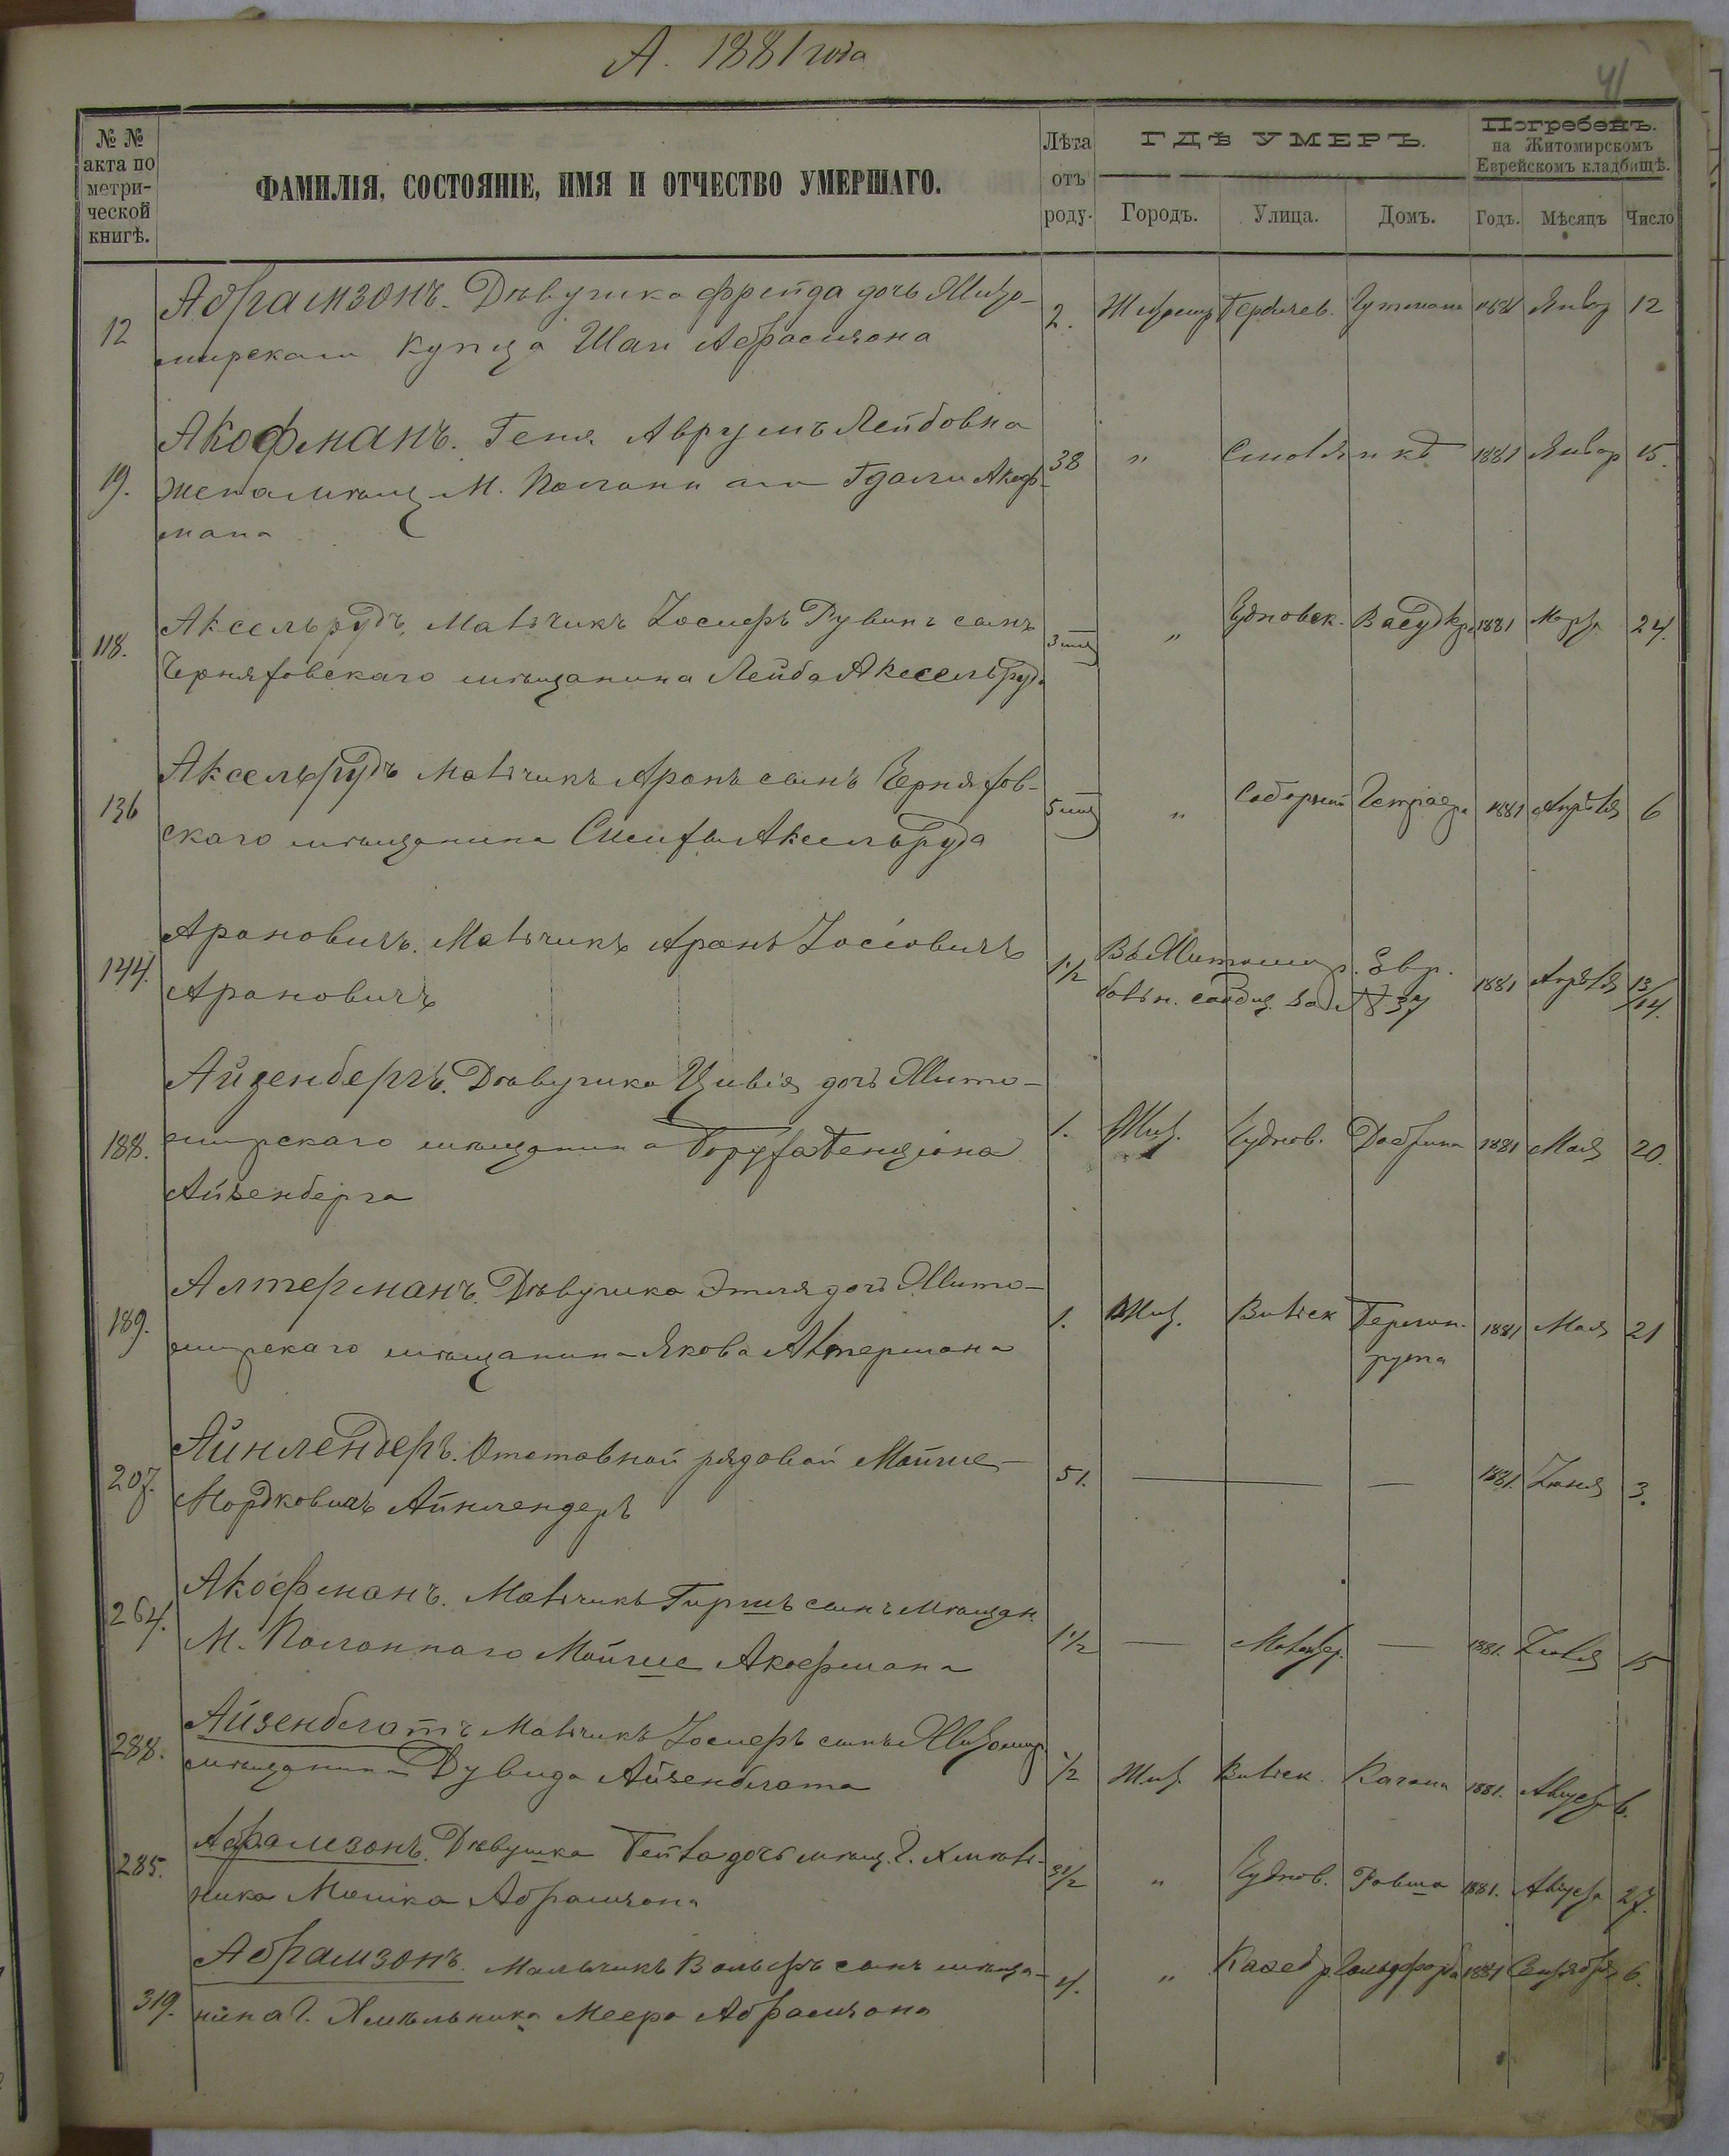 А. 1881 года
41
№ № акта по метри-ческой книгѣ.
ФАМИЛІЯ, СОСТОЯНІЕ, ИМЯ И ОТЧЕСТВО УМЕРШАГО.
Лѣта отъ роду.
ГДѢ УМЕРЪ.
Городъ. Улица. Домъ.
Погребенъ.
на Житомирскомъ
Еврейскомъ кладбищѣ.
Годъ. Мѣсяцъ Число
Абрамзонъ. Дѣвушка Фрейда дочь Жито-
12 мирскаго купца Шаи Абрамзона 2. Житомир Бердичев. Гутмана 1881 Январ 12
Акофманъ. Геня Аврумъ Лейбовна
19. жена мѣщ. М. Полоннаго Гдали Акоф- 38 " 1881 Январ 15.
мана
Аксельрудъ, Мальчикъ Іосифъ Рувинъ сынъ
118. Черняховскаго мѣщанина Лейба Аксельруда 3 мѣс " Чудновск. 1881 Марта 24.
Аксельрудъ Мальчикъ Аронъ сынъ Черняхов-
136 скаго мѣщанина Аксельруда 5 мѣс " Соборный 1881 Апрѣля 6
Арановичъ. Мальчикъ Аронъ Іосіовичъ
144. Арановичъ 1 1/2 Въ Житомир. Евр.
больн. свидѣт. за № 37 1881 Апрѣля 13/14.
Айзенбергъ. Дѣвушка Цивія дочь Жито-
188. мирскаго мѣщанина Боруха Бенціона 1. Жит. Чуднов. 1881 Мая 20.
Айзенберга
Алтерманъ. Дѣвушка Этля дочь Жито-
189. мирскаго мѣщанина Якова Алтермана 1. Жит. Вильск 1881 Мая 21
Айнлендеръ. Отставной рядовой Мойше-
207. Мордковичъ Айнлендеръ 51. — — 1881. Іюня 3.
Акофманъ. Мальчикъ Гиршъ сынъ мѣщан.
264. М. Полоннаго Мойше Акофмана 1 1/2 — — 1881. Іюля 15
Айзенблатъ Мальчикъ Іосифъ сынъ Житомир.
288. мѣщанина Дувида Айзенблата 1/2 Жит. Вильск. Кагана 1881. Августа 6.
Абрамзонъ. Дѣвушка Бейла дочь мѣщ. г. Хмѣль-
285. ника Мошка Абрамзона 3 1/2 " Чуднов. 1881. Августа 27.
Абрамзонъ. Мальчикъ Вольфъ сынъ мѣща-
319. нина г. Хмѣльника Меера Абрамзона 4. " Каѳедр. Гольдфарба 1881 Сентября 6.